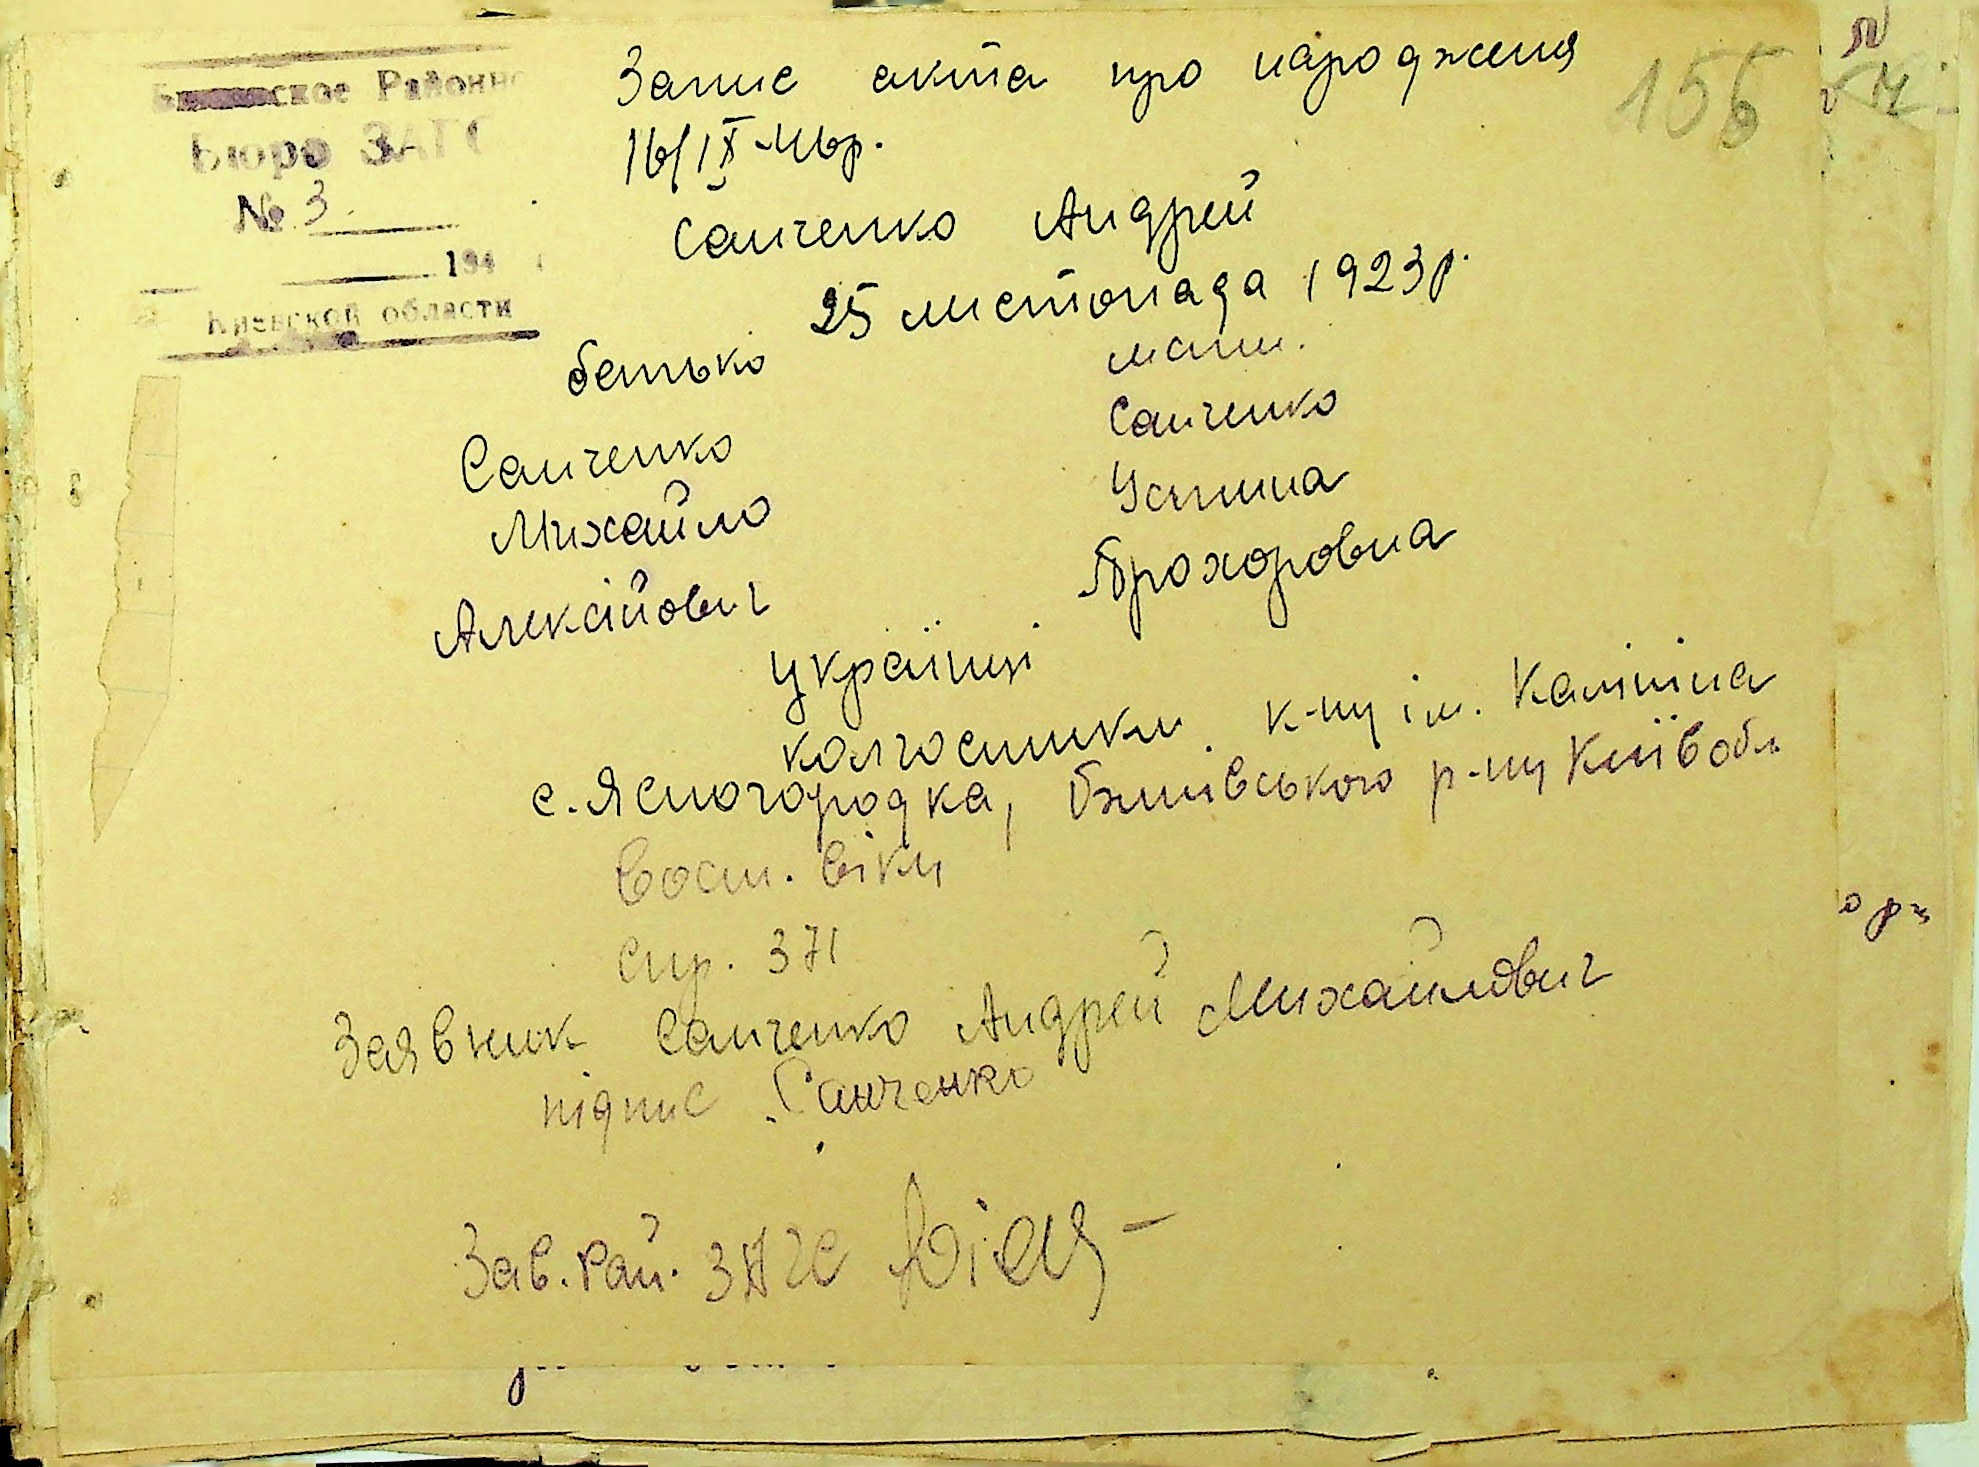 Районно
Бюро ЗАГС
№ 3
194
Киевской области
155
Запис акта про народженя
16/IX-44р.
Санченко Андрей
25 листопада 1923р.
батько мати.
Санченко Санченко
Михайло Устина
Алексійович Прохоровна
українці
колгоспники к-пу ім. Калініна
с. Ясногородка, Бишівського р-ну Київ обл.
Вост. віку
спр. 371
Заявник Санченко Андрей Михайлович
підпис Санченко
Зав. Рай. ЗАГС